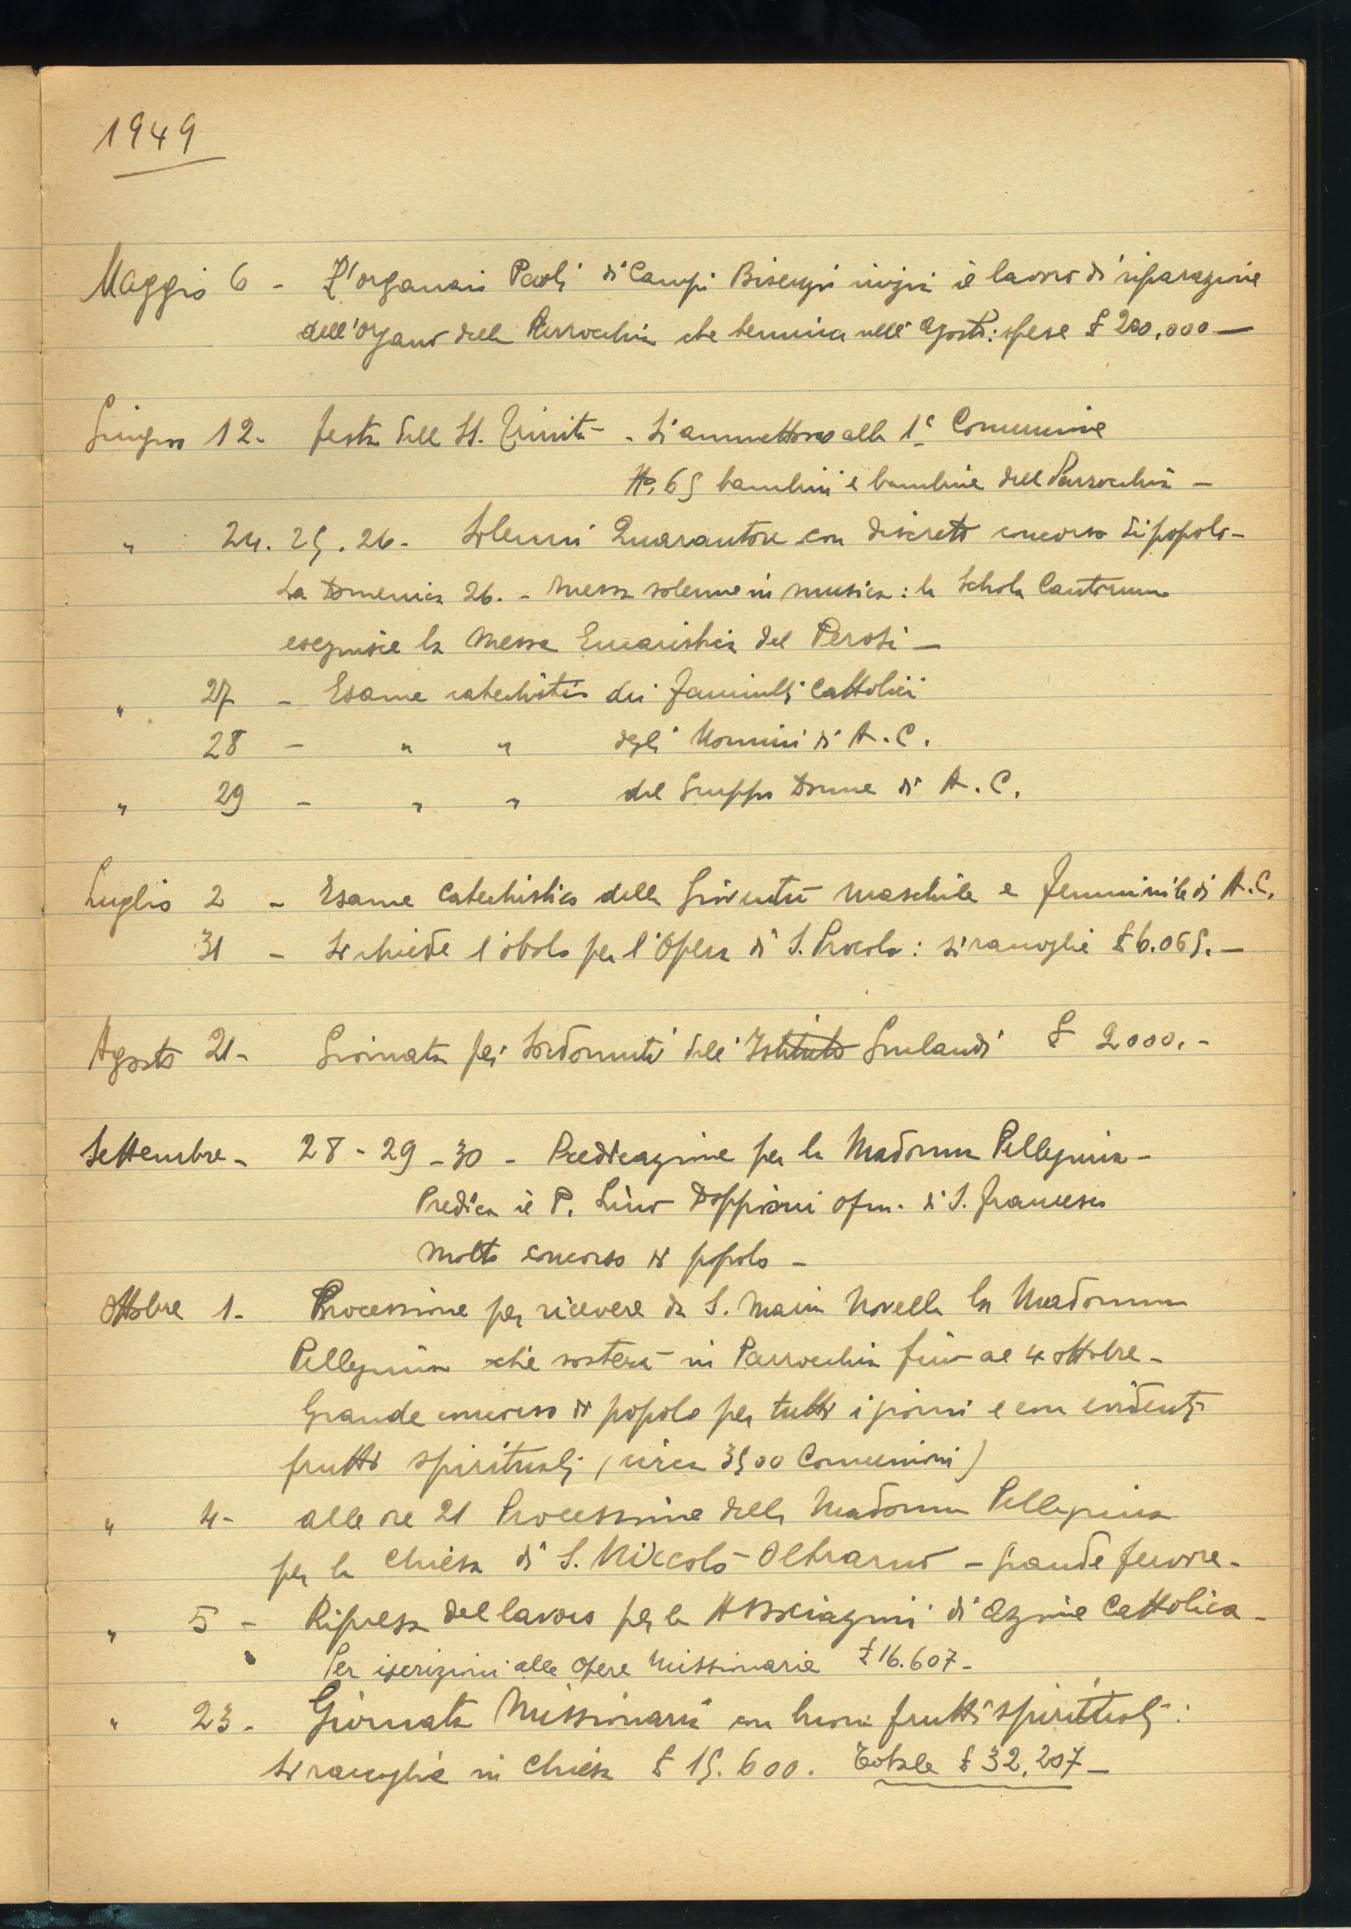 1949
Maggio 6 - L'organaio Paoli di Campi Bisenzio inizia il lavoro di riparazione
dell'organo della Parrocchia che termina nell'Agosto: spese £ 200.000 —
Giugno 12 - Festa della SS. Trinità - Si ammettono alla 1ª Comunione
No. 65 bambini e bambine della Parrocchia -
" 24. 25. 26 - Solenni Quarantore con discreto concorso di popolo -
La Domenica 26. - Messa solenne in musica: la Schola Cantorum
eseguisce la Messa Eucaristica del Perosi -
" 27 - Esame catechistico dei Fanciulli Cattolici
28 - " " degli Uomini di A.C.
" 29 - " " del Gruppo Donne di A.C.
Luglio 2 - Esame Catechistico della Gioventù maschile e femminile di A.C.
31 - Si chiede l'obolo per l'Opera di S. Procolo: si raccoglie £ 6.065. -
Agosto 21 - Giornata pei Sordomuti dell'Istituto Gualandi £ 2000. -
Settembre - 28 - 29 - 30 - Predicazione per la Madonna Pellegrina -
Predica il P. Lino Doppioni ofm. di S. Francesco
Molto concorso di popolo -
Ottobre 1 - Processione per ricevere da S. Maria Novella la Madonna
Pellegrina che sosterà in Parrocchia fino al 4 ottobre -
Grande concorso di popolo per tutti i giorni e con evidenti
frutti spirituali (circa 3500 Comunioni)
" 4 - alle ore 21 Processione della Madonna Pellegrina
per la Chiesa di S. Niccolò Oltrarno - grande fervore -
" 5 - Ripresa del lavoro per le Associazioni di Azione Cattolica -
Per iscrizioni alle Opere Missionarie £ 16.607 -
" 23 - Giornata Missionaria con buoni frutti spirituali:
Si raccoglie in Chiesa £ 15.600. Totale £ 32.207 -